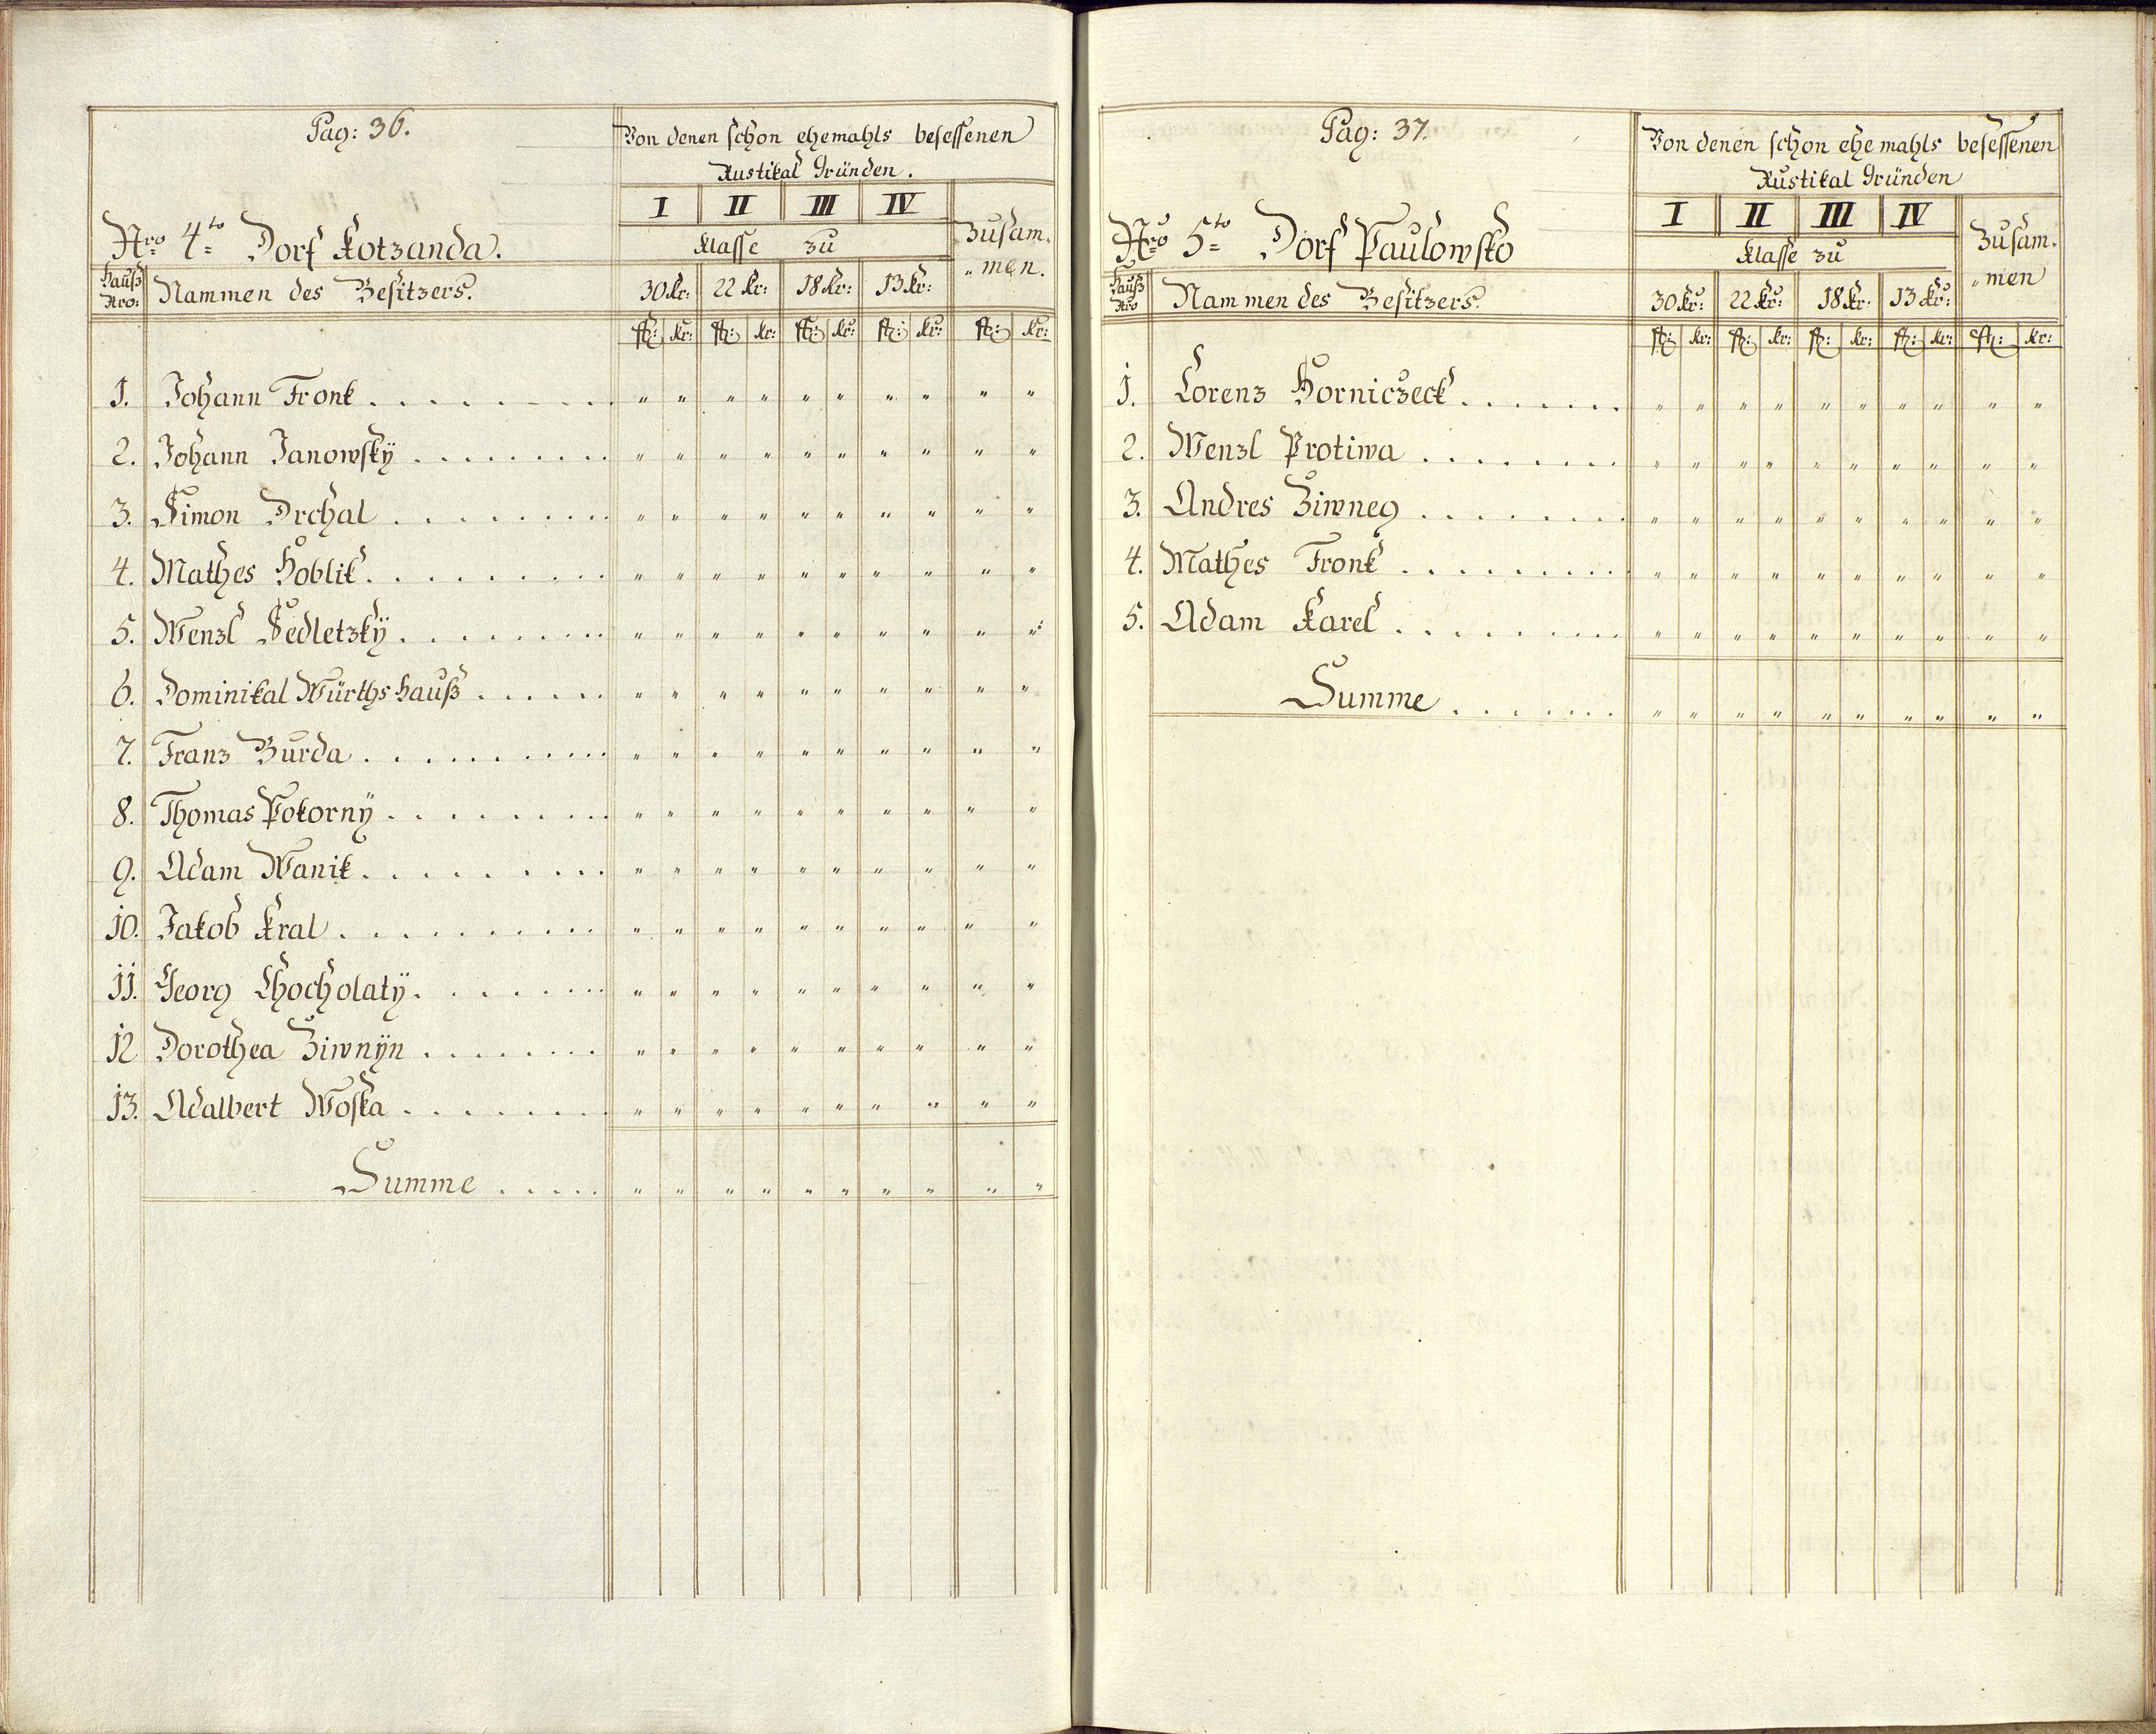 Pag: 36.
Von denen schon ehemahls besessenen
Rustikal Gründen.
I II III IV
Nro 4to Dorf Kotzanda.
Klasse zu
Zusam„
„men.
Hauß Nro: Nammen des Besitzers.
30 kr: 22 kr: 18 kr: 13 kr:
fl: kr: fl: kr: fl: kr: fl: kr: fl: kr:
1. Johann Fronk . . . . . . . . . " " " " " " " " " "
2. Johann Janowskÿ . . . . . . . . . " " " " " " " " " "
3. Simon Drchal . . . . . . . . . " " " " " " " " " "
4. Mathes Hoblik . . . . . . . . . " " " " " " " " " "
5. Wenzl Sedletzkÿ . . . . . . . . " " " " " " " " " "
6. Dominikal Würthshauß . . . . . . " " " " " " " " " "
7. Franz Burda . . . . . . . . . . " " " " " " " " " "
8. Thomas Pokornÿ . . . . . . . . " " " " " " " " " "
9. Adam Wanik . . . . . . . . . " " " " " " " " " "
10. Jakob Kral . . . . . . . . . . " " " " " " " " " "
11. Georg Chocholatÿ . . . . . . . " " " " " " " " " "
12 Dorothea Ziwnÿn . . . . . . . " " " " " " " " " "
13. Adalbert Woska . . . . . . . . " " " " " " " " " "
Summe . . . . . " " " " " " " " " "
Pag: 37.
Von denen schon ehemahls besessenen
Rustikal Gründen
I II III IV
Nro 5to Dorf Paulowsko
Klasse zu
Zusam„
„men
Hauß Nro Nammen des Besitzers.
30 kr: 22 kr: 18 kr: 13 kr:
fl: kr: fl: kr: fl: kr: fl: kr: fl: kr:
1. Lorenz Horniczeck . . . . . . . " " " " " " " " " "
2. Wenzl Protiwa . . . . . . . . " " " " " " " " " "
3. Andres Ziwneg . . . . . . . . " " " " " " " " " "
4. Mathes Fronk . . . . . . . . . " " " " " " " " " "
5. Adam Karel . . . . . . . . . " " " " " " " " " "
Summe . . . . . . . " " " " " " " " " "